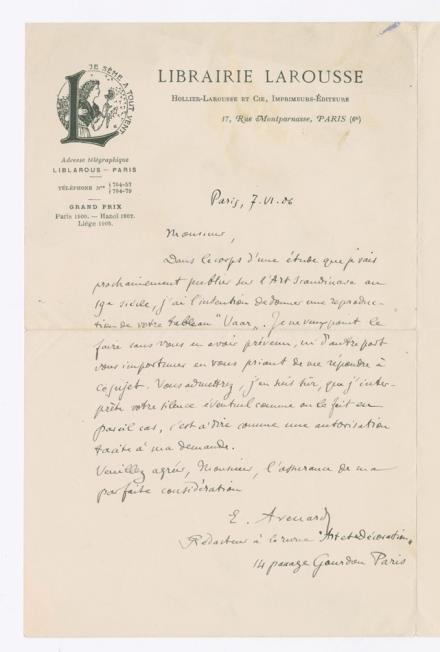 JE SÈME A TOUT VENT
L
LIBRAIRIE LAROUSSE
HOLLIER-LAROUSSE ET CIE, IMPRIMEURS-ÉDITEURS
17, Rue Montparnasse, PARIS (6e)
Adresse télégraphique
LIBLAROUS — PARIS
TÉLÉPHONE Nos 704-57
704-79
GRAND PRIX
Paris 1900. — Hanoï 1902.
Liège 1905.
Paris, 7.VI.06
Monsieur,
Dans le corps d'une étude que je vais
prochainement publier sur l'Art Scandinave au
19e siècle, j'ai l'intention de donner une reproduc-
tion de votre tableau "Vaar". Je ne veux point le
faire sans vous en avoir prévenu, ni d'autre part
vous importuner en vous priant de me répondre à
ce sujet. Vous admettrez, j'en suis sûr, que j'inter-
prète votre silence éventuel comme on le fait en
pareil cas, c'est à dire comme une autorisation
tacite à ma demande.
Veuillez agréer, Monsieur, l'assurance de ma
parfaite considération
E. Avenard
Rédacteur à la revue "Art et Décoration"
14 passage Gourdon Paris